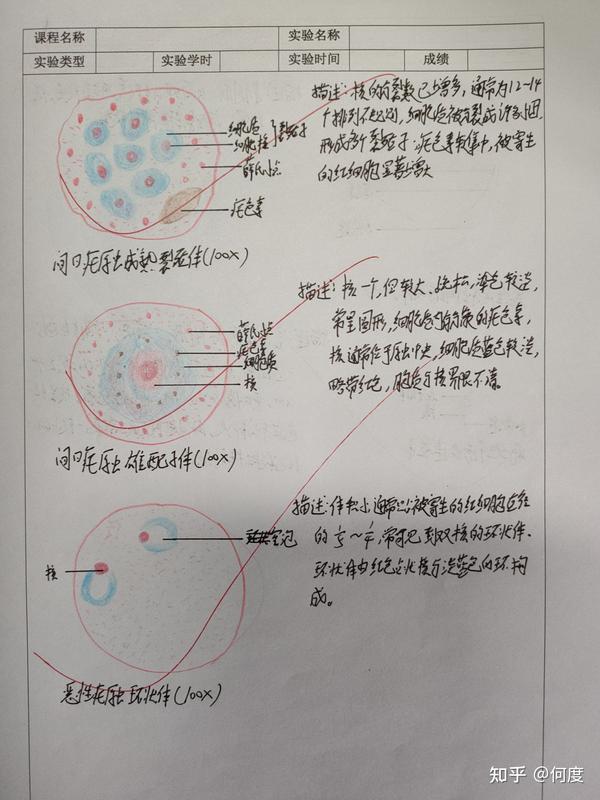 课程名称 实验名称
实验类型 实验学时 实验时间 成绩
描述:核的分裂数已增多,通常为12-14
个排列不规则,细胞质被分裂成许多小团,
形成多个裂殖子;疟色素集中,被寄生
的红细胞显著增大
细胞质
细胞核
裂殖子
薛氏小点
疟色素
间日疟原虫成熟裂殖体(100X)
描述:核一个,但较大、疏松,染色较淡,
常呈圆形,细胞质内的疟色素,
核通常位于原虫中央,细胞质蓝色较淡,
略带红色,胞质与核界限不清。
薛氏小点
疟色素
细胞质
核
间日疟原虫雄配子体(100X)
描述:体积小通常只被寄生的红细胞直径
的1/5~1/6,常可见到双核的环状体.
环状体由红色点状核与淡蓝色的环构
成。
空泡
核
恶性疟原虫环状体(100X)
知乎 @何度